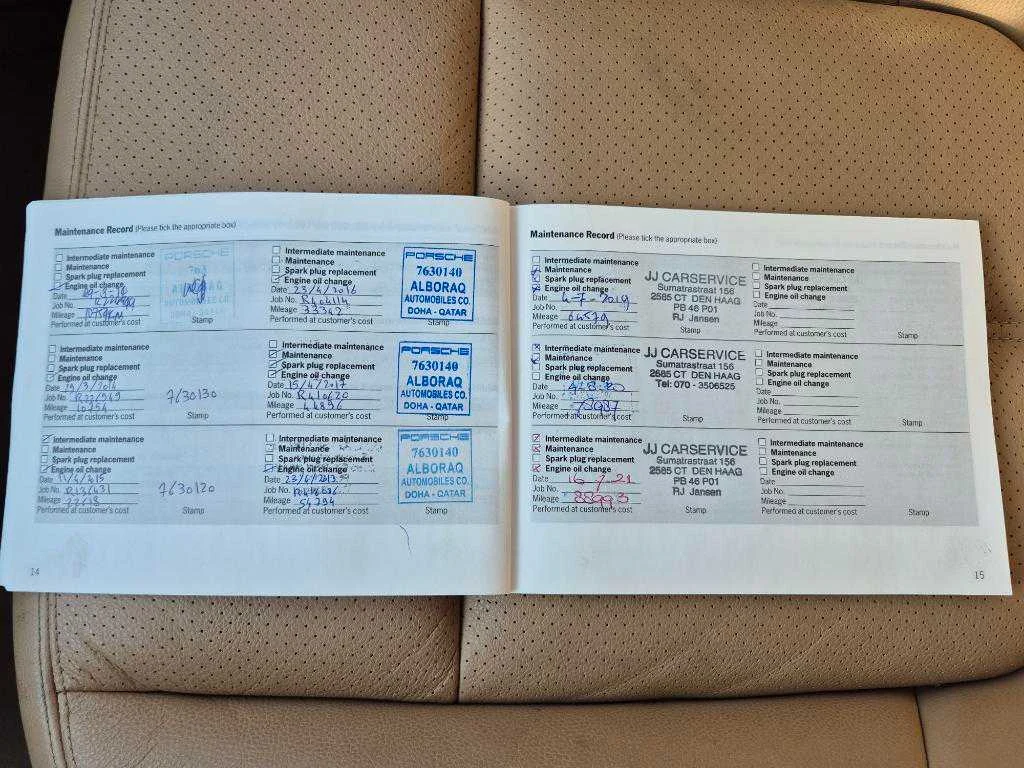 Maintenance Record (Please tick the appropriate box)
Intermediate maintenance
Maintenance
Spark plug replacement
Engine oil change
Date
Job No.
Mileage
Performed at customer's cost
Stamp
PORSCHE
AUTOMOBILES CO.
DOHA - QATAR
Intermediate maintenance
Maintenance
Spark plug replacement
Engine oil change
Date 23/4/2016
Job No.
Mileage 33342
Performed at customer's cost
Stamp
PORSCHE
7630140
ALBORAQ
AUTOMOBILES CO.
DOHA - QATAR
Intermediate maintenance
Maintenance
Spark plug replacement
Engine oil change
Date
Job No.
Mileage
Performed at customer's cost
7630130
Stamp
Intermediate maintenance
Maintenance
Spark plug replacement
Engine oil change
Date 15/4/2017
Job No. R410620
Mileage 44836
Performed at customer's cost
Stamp
PORSCHE
7630140
ALBORAQ
AUTOMOBILES CO.
DOHA - QATAR
Intermediate maintenance
Maintenance
Spark plug replacement
Engine oil change
Date 11/4/215
Job No.
Mileage
Performed at customer's cost
7630120
Stamp
Intermediate maintenance
Maintenance
Spark plug replacement
Engine oil change
Date
Job No.
Mileage 54294
Performed at customer's cost
Stamp
PORSCHE
7630140
ALBORAQ
AUTOMOBILES CO.
DOHA - QATAR
14
Maintenance Record (Please tick the appropriate box)
Intermediate maintenance
Maintenance
Spark plug replacement
Engine oil change
Date 4-7-2019
Job No.
Mileage 64579
Performed at customer's cost
JJ CARSERVICE
Sumatrastraat 156
2585 CT DEN HAAG
PB 46 P01
RJ Jansen
Stamp
Intermediate maintenance
Maintenance
Spark plug replacement
Engine oil change
Date
Job No.
Mileage
Performed at customer's cost
Stamp
Intermediate maintenance
Maintenance
Spark plug replacement
Engine oil change
Date 4-8-20
Job No.
Mileage
Performed at customer's cost
JJ CARSERVICE
Sumatrastraat 156
2585 CT DEN HAAG
Tel: 070 - 3506525
Stamp
Intermediate maintenance
Maintenance
Spark plug replacement
Engine oil change
Date
Job No.
Mileage
Performed at customer's cost
Stamp
Intermediate maintenance
Maintenance
Spark plug replacement
Engine oil change
Date 16-7-21
Job No.
Mileage 88993
Performed at customer's cost
JJ CARSERVICE
Sumatrastraat 156
2585 CT DEN HAAG
PB 46 P01
RJ Jansen
Stamp
Intermediate maintenance
Maintenance
Spark plug replacement
Engine oil change
Date
Job No.
Mileage
Performed at customer's cost
Stamp
15